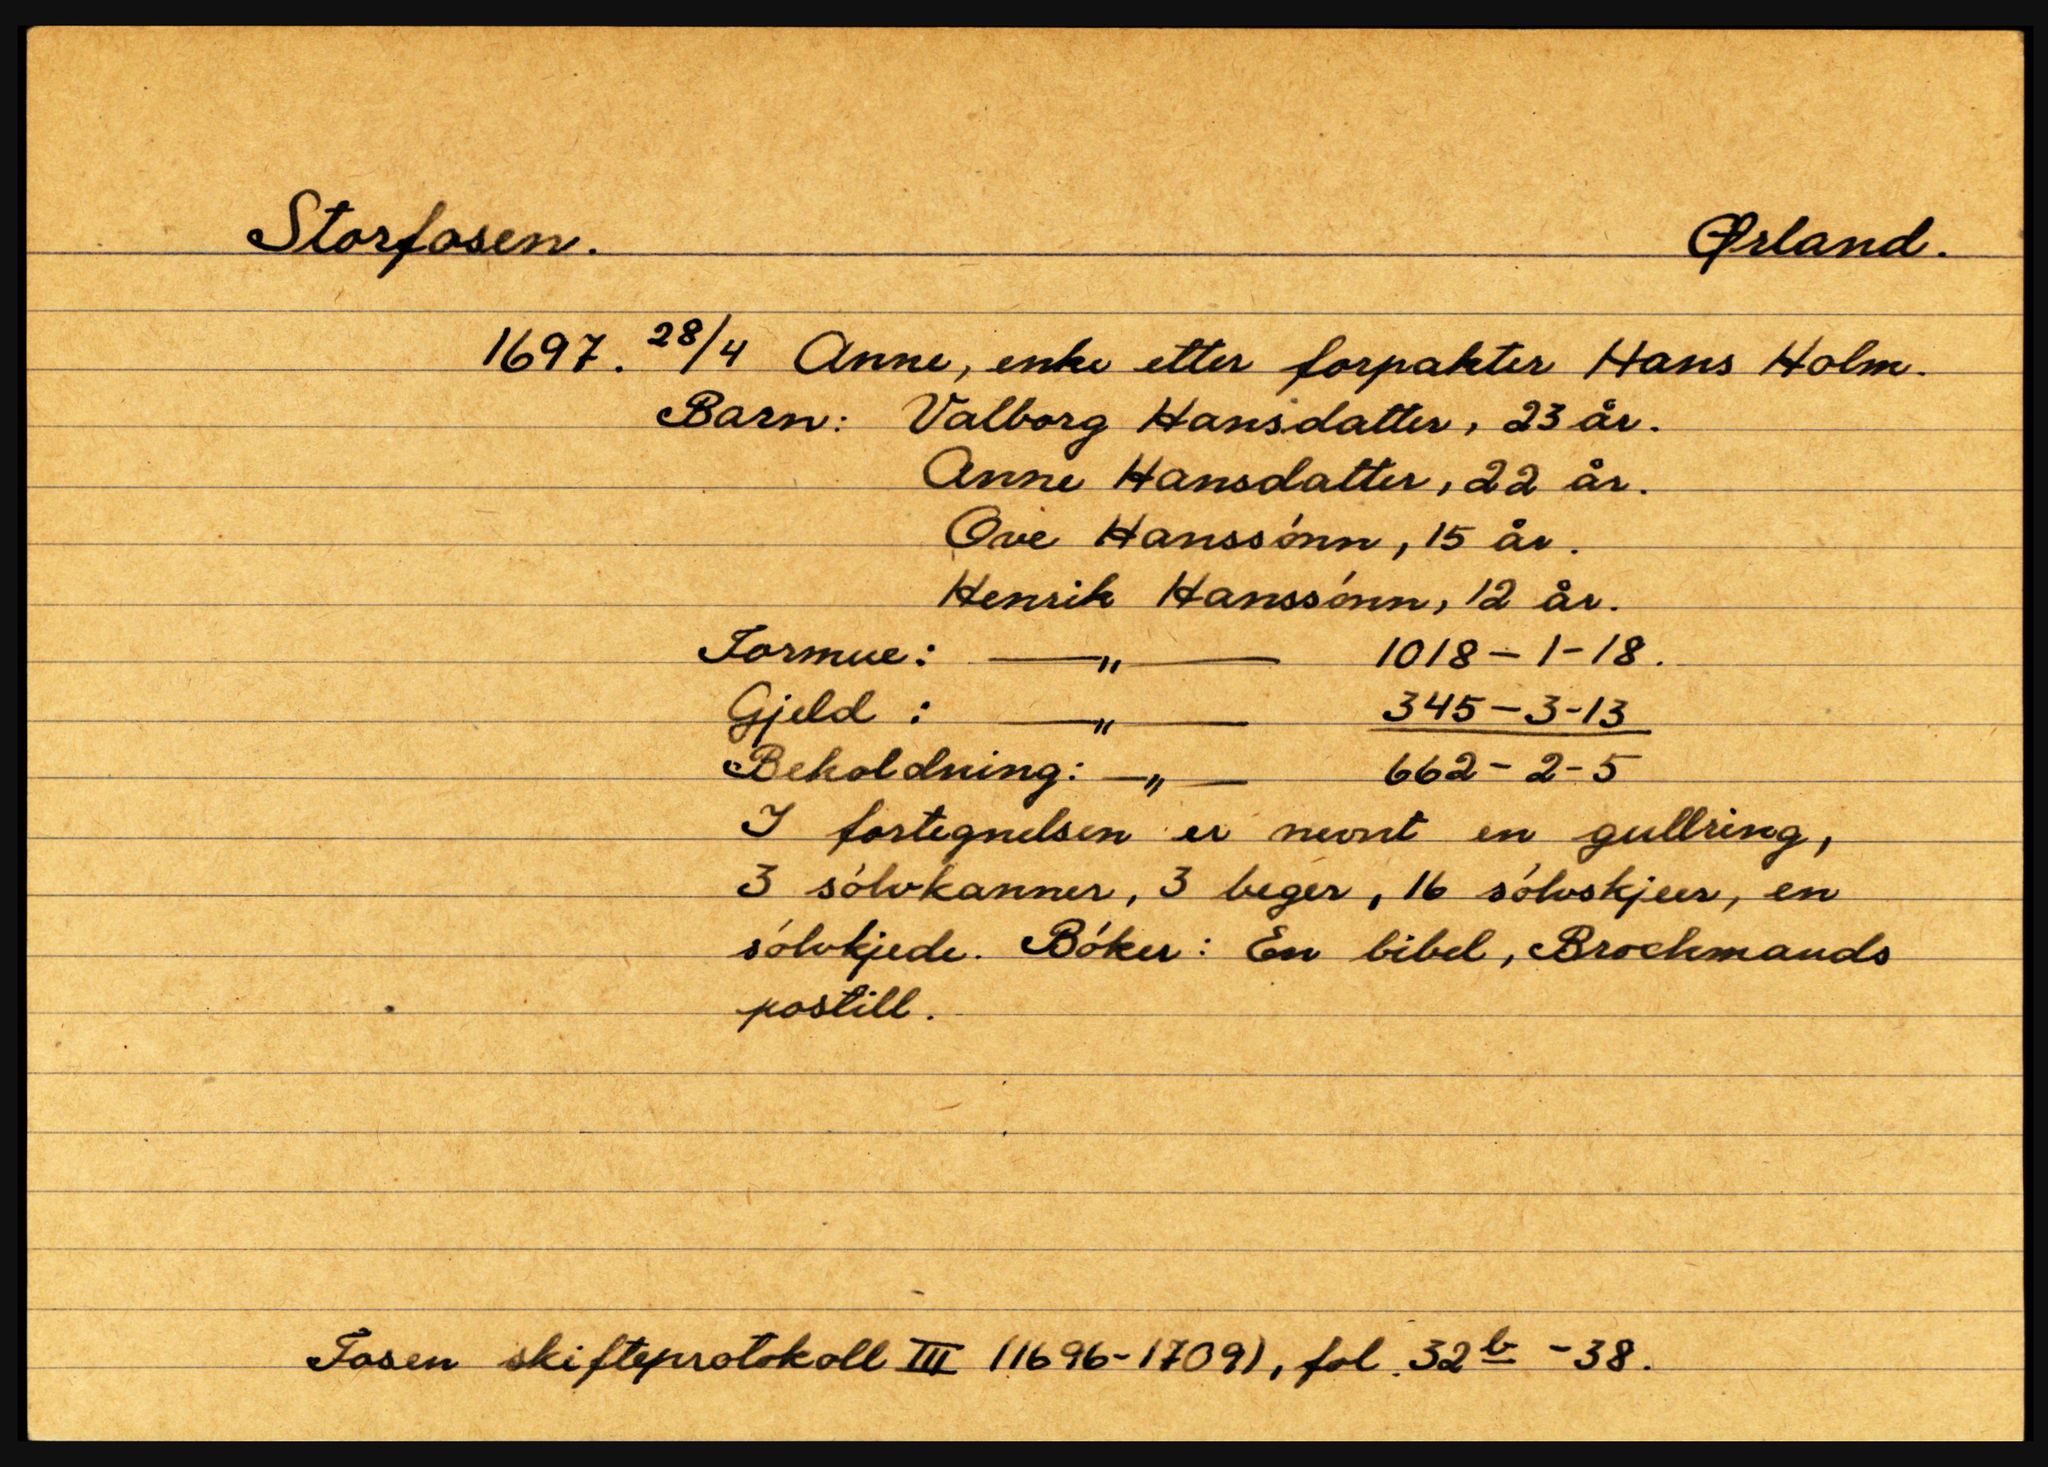 Storfosen. Ørland.
1697. 28/4 Anne, enke etter forpakter Hans Holm.
Barn: Valborg Hansdatter, 23 år.
Anne Hansdatter, 22 år.
Ove Hanssónn, 15 år.
Henrik Hanssónn, 12 år.
Formue: —„— 1018-1-18.
Gjeld : —„— 345-3-13
Beholdning: —„— 662-2-5
I fortegnelsen er nevnt en gullring,
3 sólvkanner, 3 beger, 16 sólvskjeer, en
sólvkjede. Bóker: En bibel, Brochmands
postill.
Fosen skifteprotokoll III (1696-1709), fol. 32b-38.